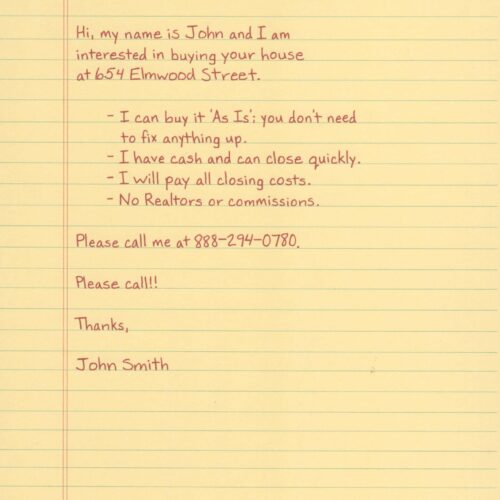 Hi, my name is John and I am
interested in buying your house
at 654 Elmwood Street.
- I can buy it 'As Is'; you don't need
to fix anything up.
- I have cash and can close quickly.
- I will pay all closing costs.
- No Realtors or commissions.
Please call me at 888-294-0780.
Please call!!
Thanks,
John Smith